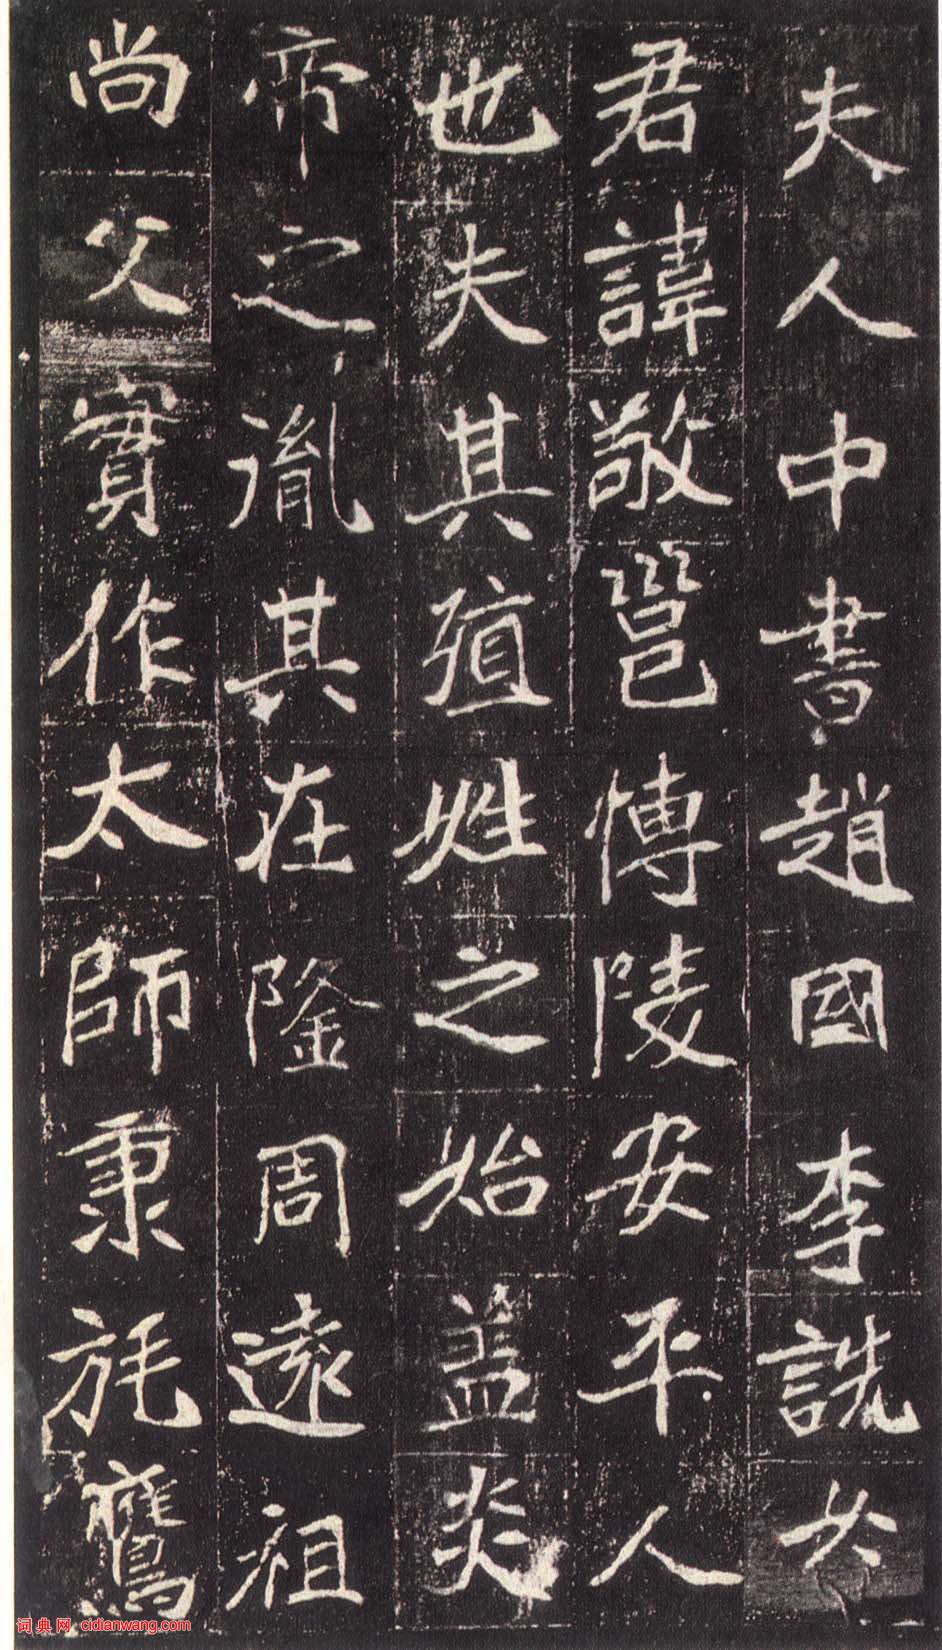 夫人中書趙國李詵女
君諱敬邕博陵安平人
也夫其殖姓之始蓋炎
帝之胤其在隆周遠祖
尚父實作太師秉旄鷹
词典网 cidianwang.com